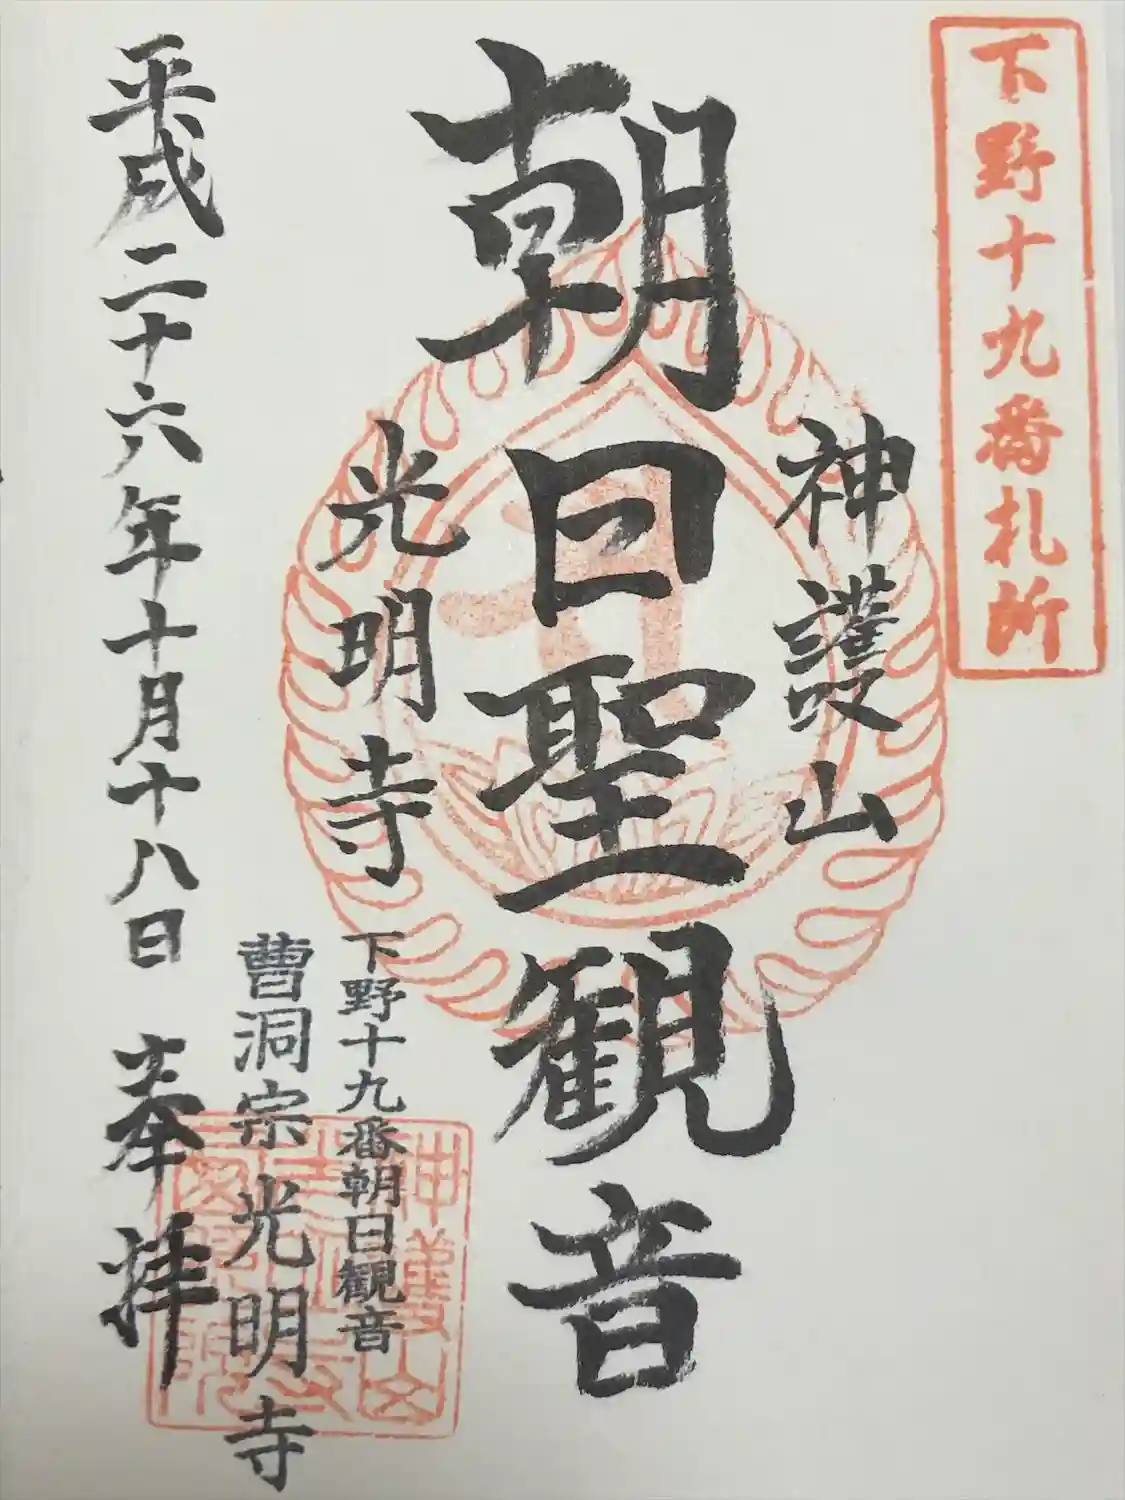 下野十九番札所
神護山
朝日聖観音
光明寺
下野十九番朝日観音
曹洞宗 光明寺
平成二十六年十月十八日 奉拝
神護山